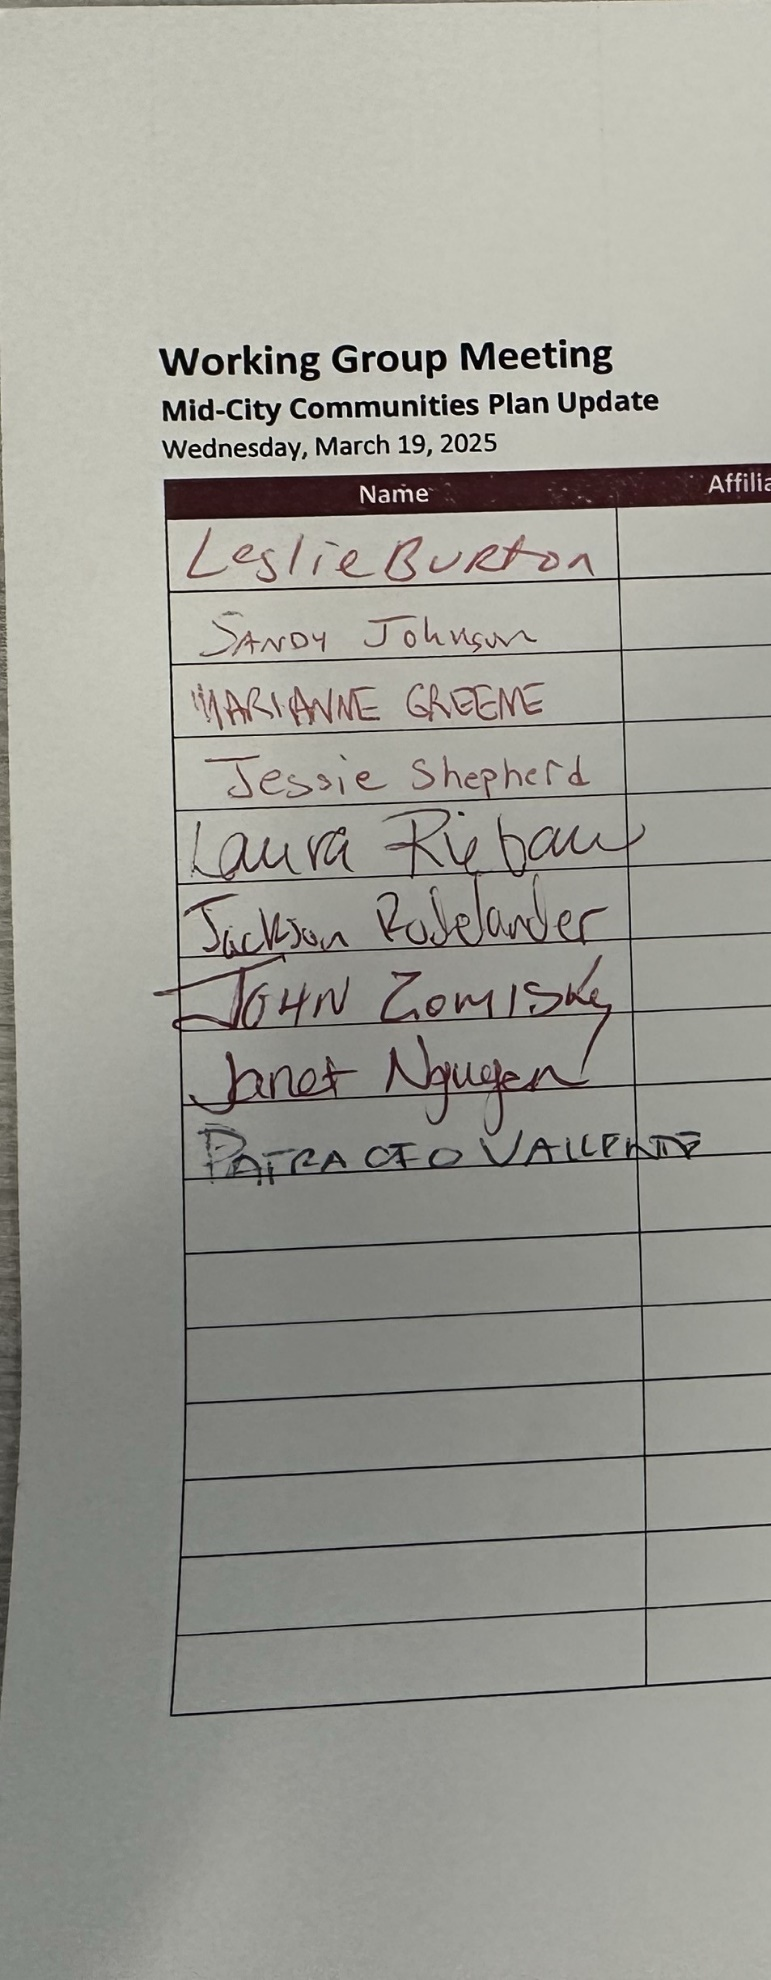 Working Group Meeting
Mid-City Communities Plan Update
Wednesday, March 19, 2025
Name Affilia
Leslie Burton
SANDY Johnson
MARIANNE GREENE
Jessie Shepherd
Laura Riebau
Jackson Rodelander
JOHN ZOMISKY
Janet Nguyen